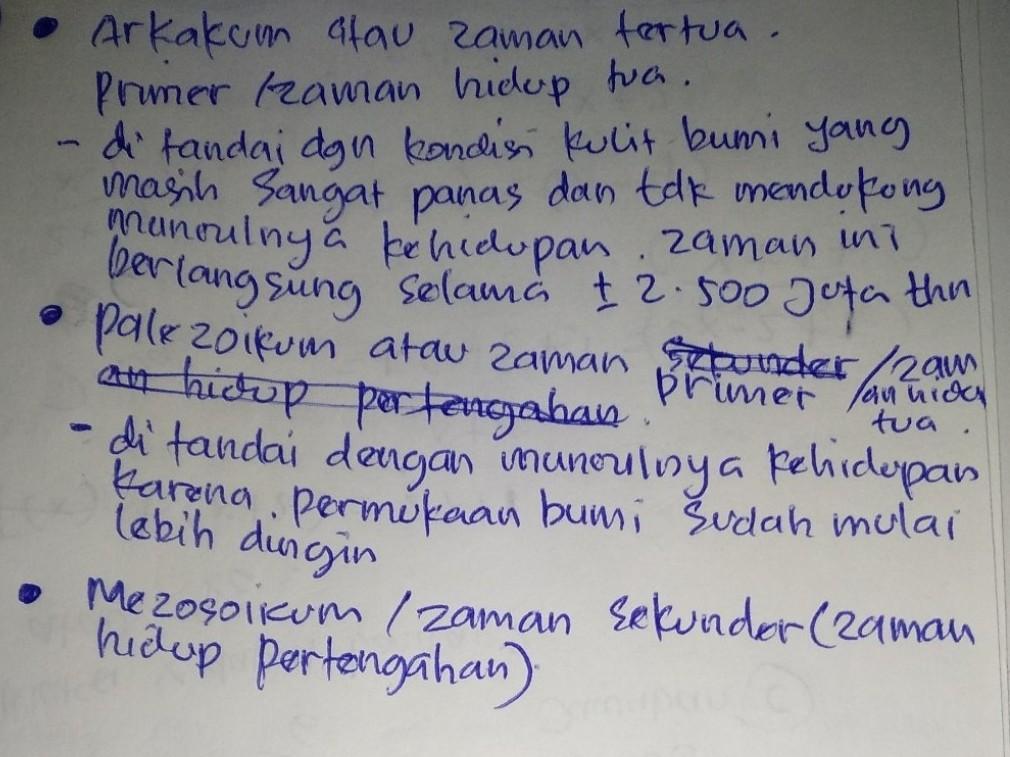 • Arkakum atau zaman tertua.
Primer /zaman hidup tua.
- di tandai dgn kondisi kulit bumi yang
masih sangat panas dan tdk mendukong
munculnya kehidupan. zaman ini
berlangsung selama ± 2.500 Juta thn
• Palezoikum atau zaman sekunder /zam
an hidup pertengahan. primer /an hidup
tua.
- di tandai dengan munculnya kehidupan
karena. permukaan bumi sudah mulai
lebih dingin
• Mezosoikum / zaman sekunder (zaman
hidup pertengahan).